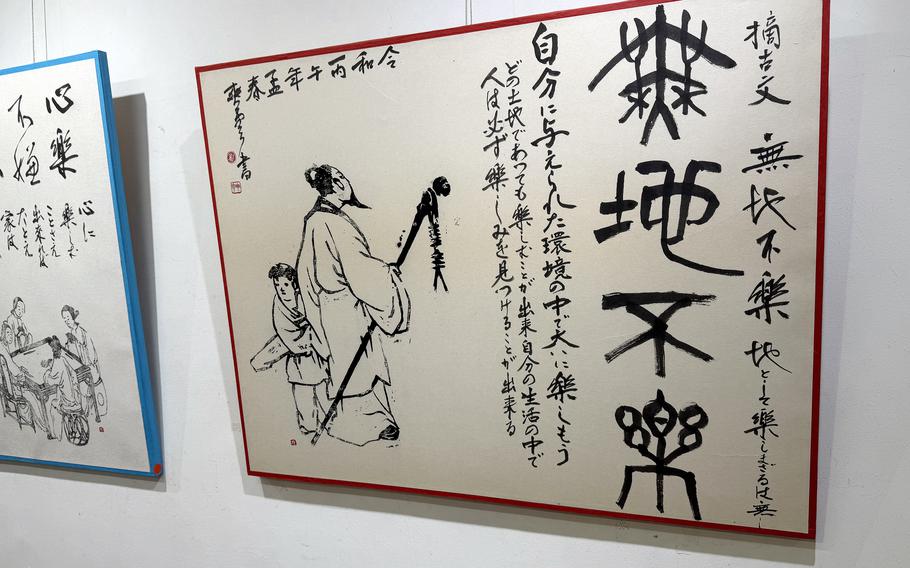 摘古文 無地不樂 地として樂しまざるは無し
無地不樂
自分に与えられた環境の中で大いに樂しもう
どの土地であっても樂しむことが出来自分の生活の中で
人は必ず樂しみを見つけることが出来る
令和丙午年孟春
書
心樂
不嫌
心に
樂し
ことさえ
出来れば
たとえ
家は